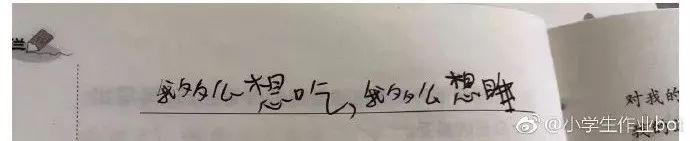 我多么想吃,我多么想睡
对我的
@小学生作业bot